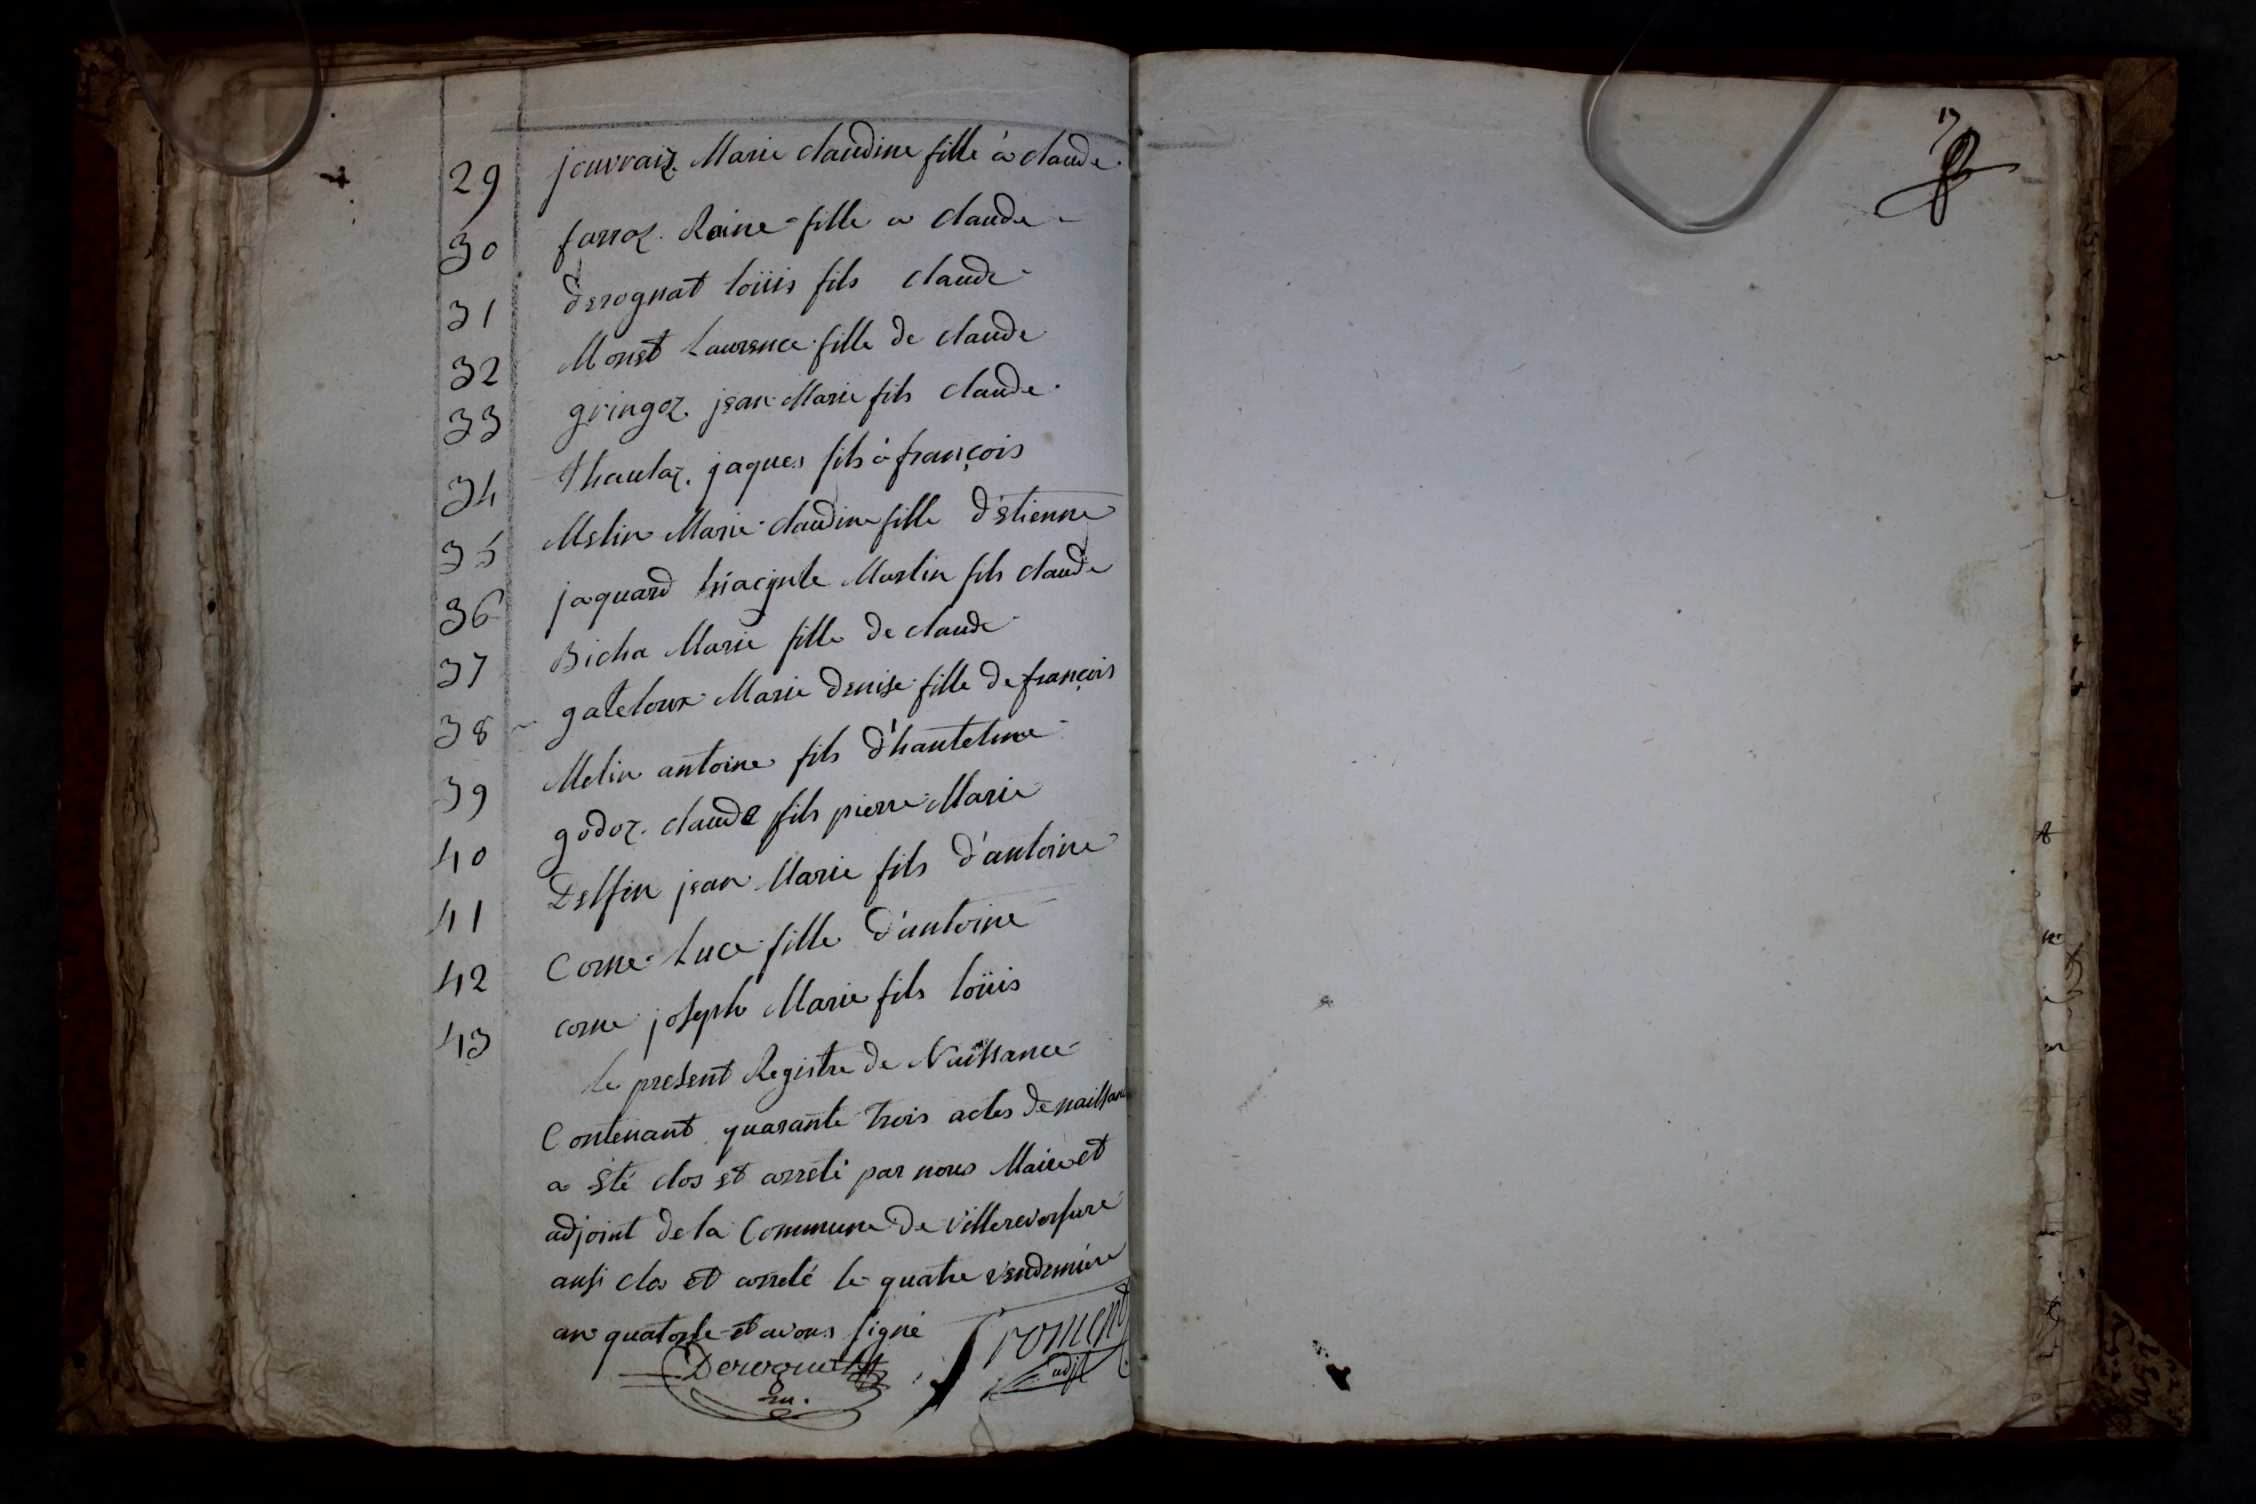 29 jouvraiz. Marie claudine fille à claude.
30 farroz. Raine fille a claude
31 derognat loüis fils claude
32 Monet Laurence fille de claude
33 gringoz. jean Marie fils claude
34 thaulaz. jaques fils à françois
35 Melin Marie claudine fille d'Etienne
36 jaquard hiacynte Martin fils claude
37 Bicha Marie fille de claude
38 gateloux Marie denise fille de françois
39 Melin antoine fils d'hantelme
40 godoz. claude fils pierre Marie
41 Delfin jean Marie fils d'antoine
42 Corne Luce fille d'antoine
43 corne joseph Marie fils loüis
Le present Registre de Naissance
Contenant quarante trois actes de naissance
a Eté clos et arreté par nous Maire et
adjoint de la Commune de Villereversure
ansi clos et arreté le quatre vendemiere
an quatorse et avons signé
Derognat
m.
Froment
adjt
17